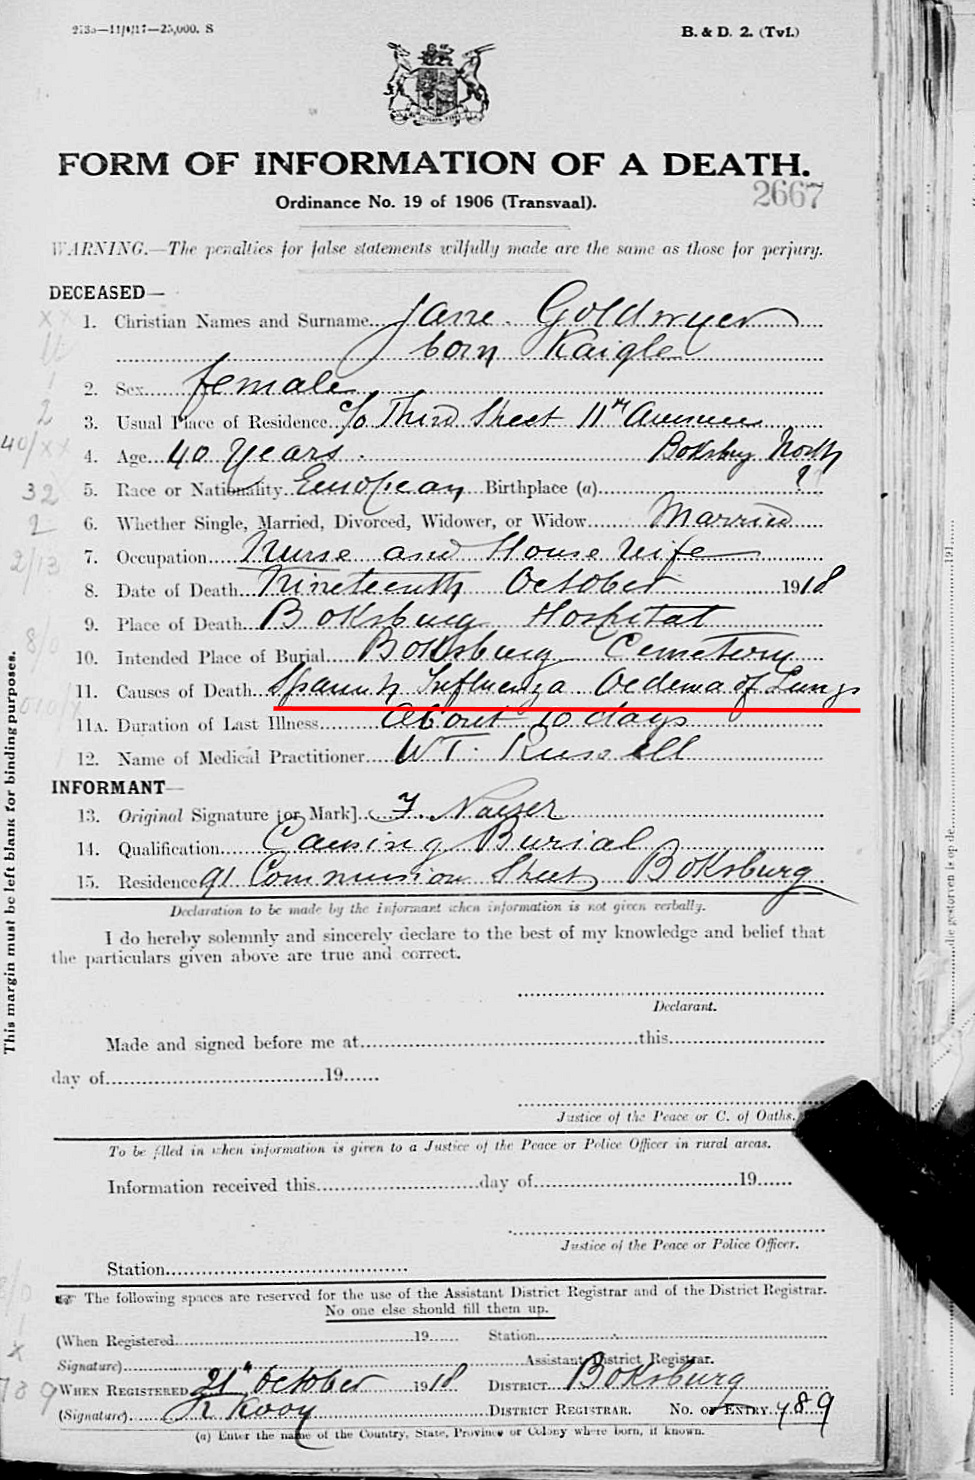 273a—11/4/17—25,000. S
B. & D. 2. (Tvl.)
FORM OF INFORMATION OF A DEATH.
2667
Ordinance No. 19 of 1906 (Transvaal).
WARNING.—The penalties for false statements wilfully made are the same as those for perjury.
DECEASED—
1. Christian Names and Surname Jane Goldwyer
born Kaigle
2. Sex female
3. Usual Place of Residence c/o Third Street 11th Avenue
4. Age 40 years. Boksbg North
5. Race or Nationality European Birthplace (a) ?
6. Whether Single, Married, Divorced, Widower, or Widow Married
7. Occupation Nurse and House Wife
8. Date of Death Nineteenth October 1918
9. Place of Death Boksburg Hospital
10. Intended Place of Burial Boksburg Cemetery
11. Causes of Death Spanish Influenza Oedema of Lungs
11A. Duration of Last Illness About 10 days
12. Name of Medical Practitioner W T. Russell
INFORMANT—
13. Original Signature [or Mark] F. Nayser
14. Qualification Causing Burial
15. Residence 91 Commission Street Boksburg
Declaration to be made by the Informant when information is not given verbally.
I do hereby solemnly and sincerely declare to the best of my knowledge and belief that
the particulars given above are true and correct.
Declarant.
Made and signed before me at this
day of 19
Justice of the Peace or C. of Oaths.
To be filled in when information is given to a Justice of the Peace or Police Officer in rural areas.
Information received this day of 19
Justice of the Peace or Police Officer.
Station
The following spaces are reserved for the use of the Assistant District Registrar and of the District Registrar.
No one else should fill them up.
(When Registered 19 Station
Signature) Assistant District Registrar.
WHEN REGISTERED 21st October 1918 DISTRICT Boksburg
(Signature) Kooy DISTRICT REGISTRAR. No. of ENTRY 789
(a) Enter the name of the Country, State, Province or Colony where born, if known.
This margin must be left blank for binding purposes.